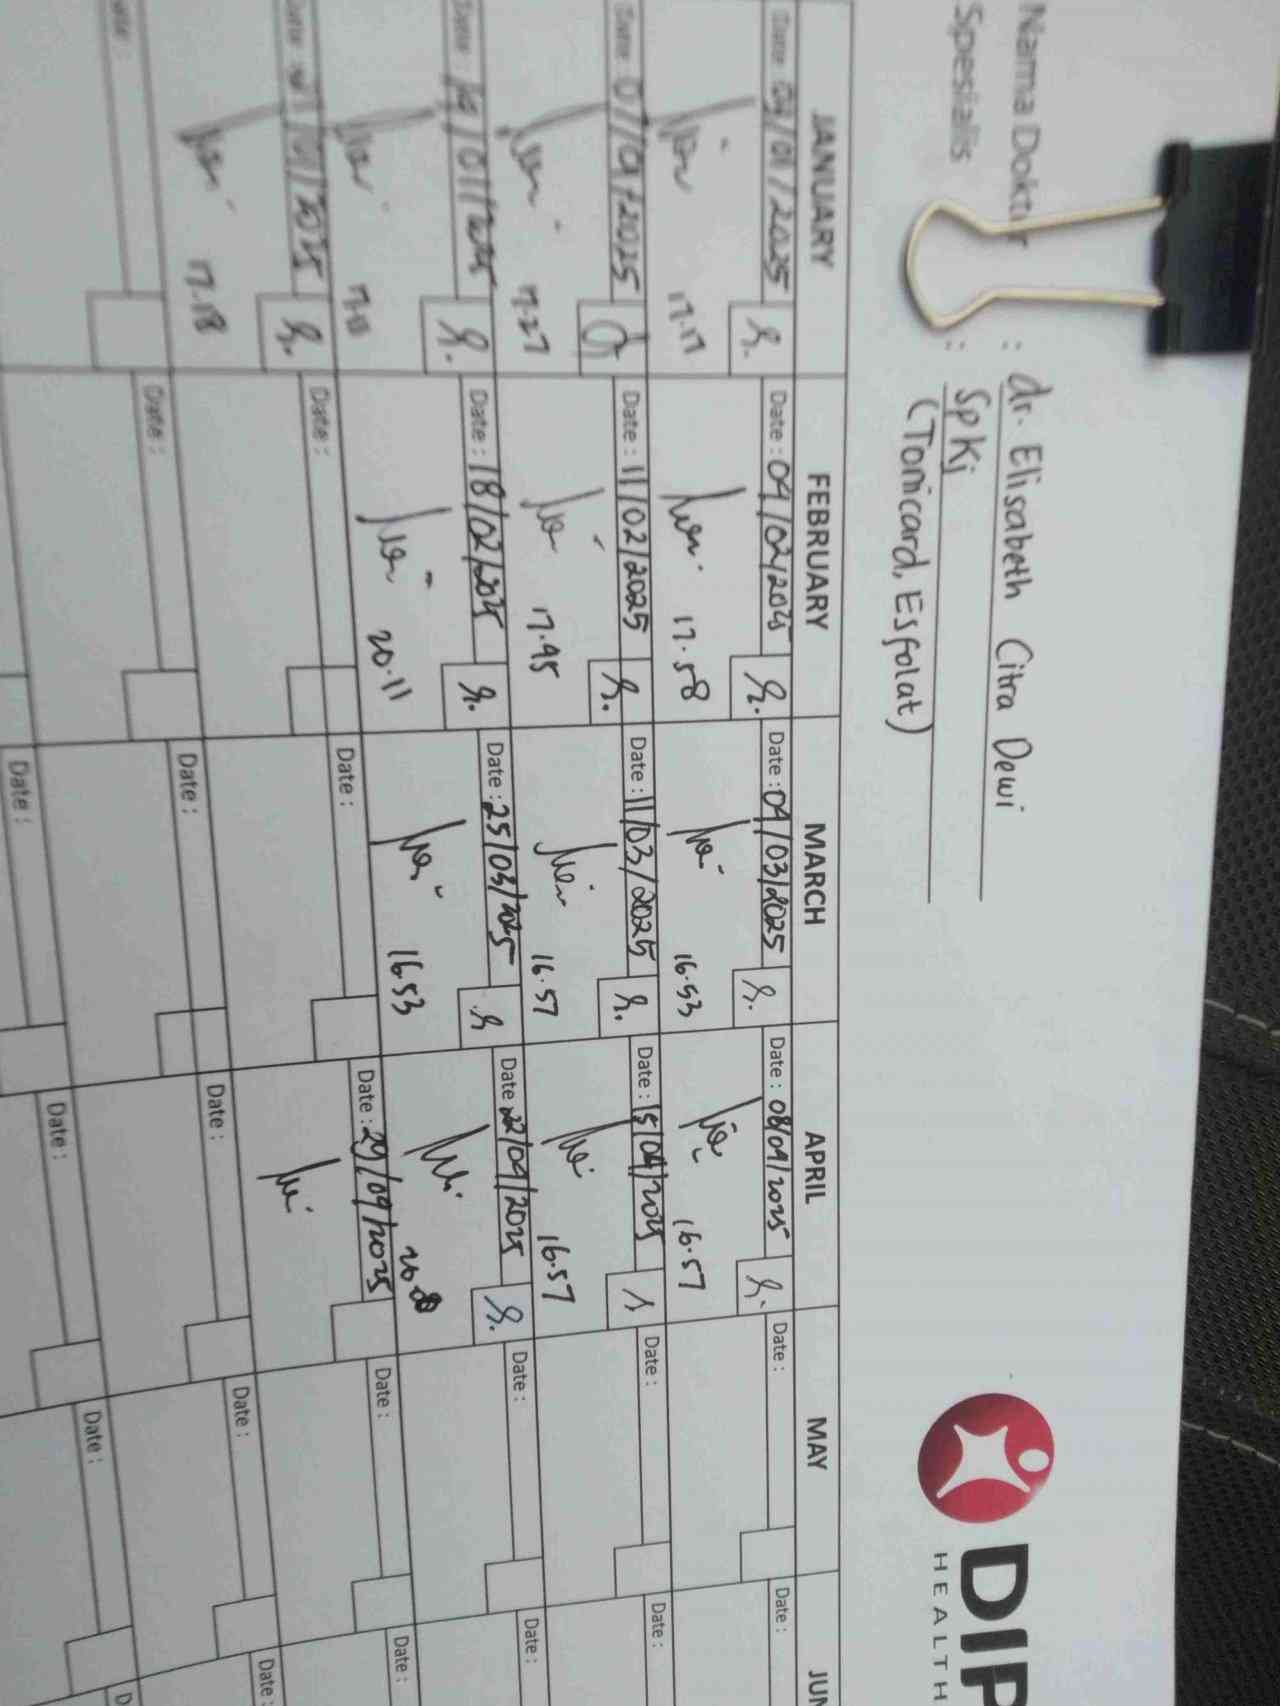 Nama Dokter : dr. Elisabeth Citra Dewi
Spesialis : SpKj
(Tonicard, Esfolat)
DIP
HEALTH
JANUARY FEBRUARY MARCH APRIL MAY JUN
Date: /01/2025 Date: 04/02/2025 Date: 04/03/2025 Date: 08/04/2025 Date: Date:
17.17 17.58 16.53 16.57
Date: 07/01/2025 Date: 11/02/2025 Date: 11/03/2025 Date: 15/04/2025 Date: Date:
17.27 17.45 16.57 16.57
Date: /01/2025 Date: 18/02/2025 Date: 25/03/2025 Date 22/04/2025 Date: Date:
20.11 16.53
Date: /01/2025 Date: Date: Date: 29/04/2025 Date: Date:
17.18
Date: Date: Date: Date: Date: Date:
Date: Date: Date: D